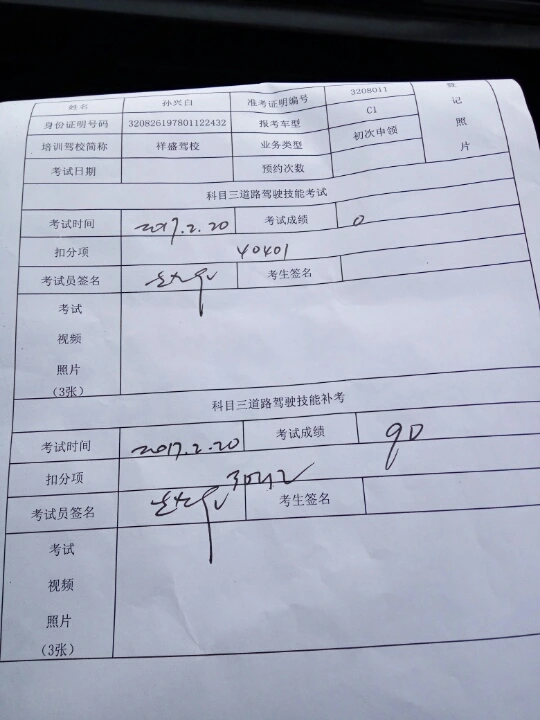 姓名 孙兴白 准考证明编号 3208011
身份证明号码 320826197801122432 报考车型 C1
培训驾校简称 祥盛驾校 业务类型 初次申领
考试日期 预约次数
登记照片
科目三道路驾驶技能考试
考试时间 2017.2.20 考试成绩 0
扣分项 40401
考试员签名 考生签名
考试
视频
照片
(3张)
科目三道路驾驶技能补考
考试时间 2017.2.20 考试成绩 90
扣分项
考试员签名 考生签名
考试
视频
照片
(3张)